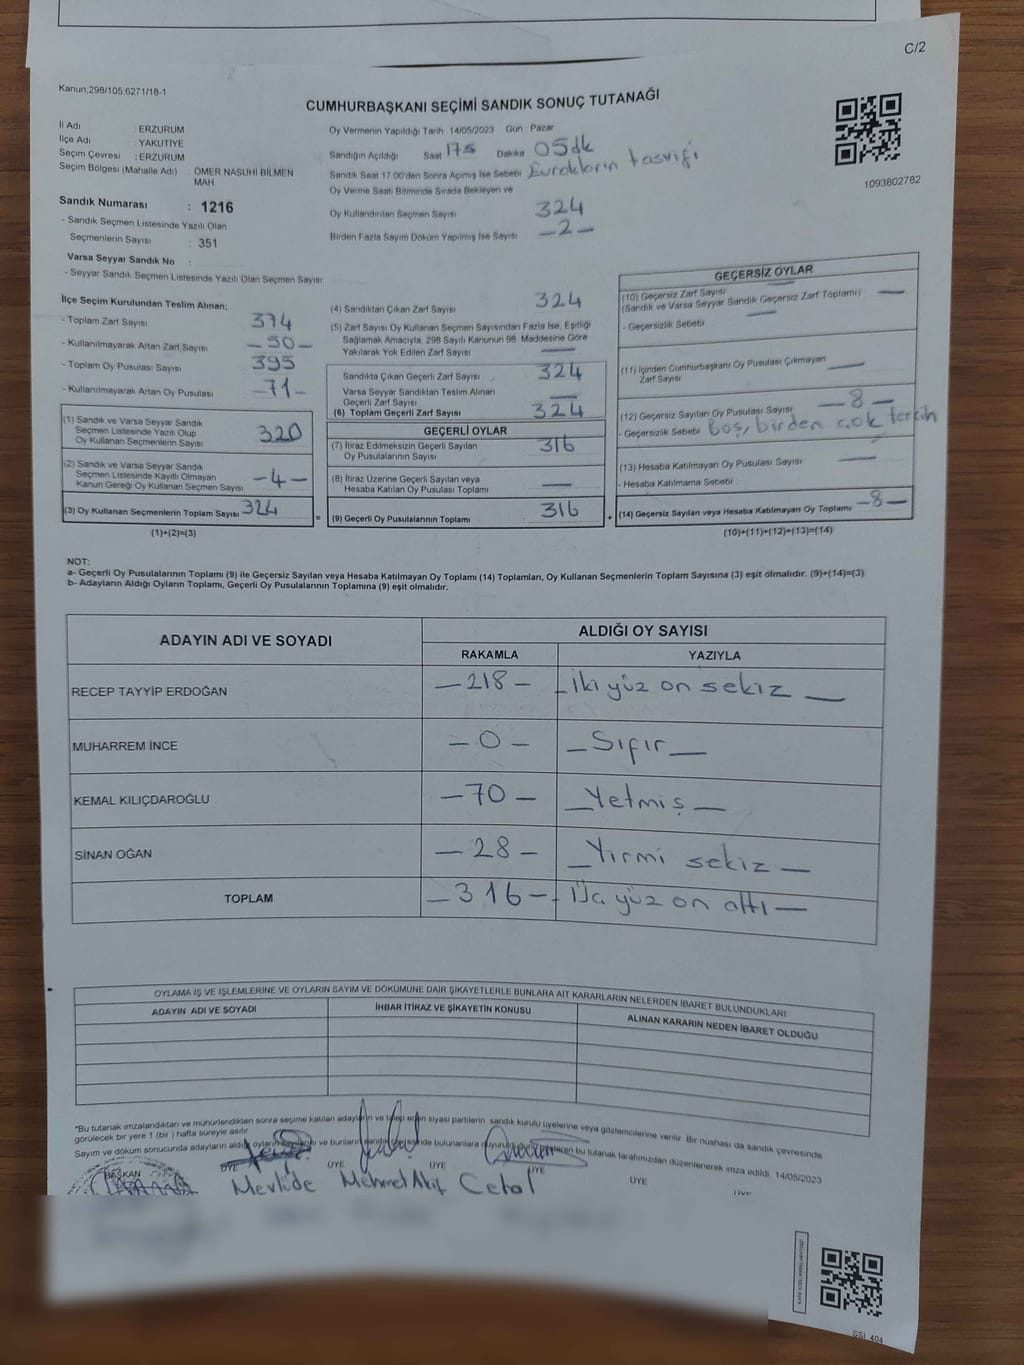 C/2
Kanun:298/105.6271/18-1
CUMHURBAŞKANI SEÇİMİ SANDIK SONUÇ TUTANAĞI
İl Adı : ERZURUM
İlçe Adı : YAKUTİYE
Seçim Çevresi : ERZURUM
Seçim Bölgesi (Mahalle Adı) : ÖMER NASUHİ BİLMEN
MAH.
Sandık Numarası : 1216
- Sandık Seçmen Listesinde Yazılı Olan
Seçmenlerin Sayısı : 351
Varsa Seyyar Sandık No :
- Seyyar Sandık Seçmen Listesinde Yazılı Olan Seçmen Sayısı
Oy Vermenin Yapıldığı Tarih 14/05/2023 Gün : Pazar
Sandığın Açıldığı Saat 175 Dakika 05dk
Sandık Saat 17:00'den Sonra Açımış İse Sebebi
Oy Verme Saati Bitiminde Sırada Bekleyen ve
Oy Kullandırılan Seçmen Sayısı 324
Birden Fazla Sayım Döküm Yapılmış İse Sayısı -2-
1093802782
İlçe Seçim Kurulundan Teslim Alınan;
- Toplam Zarf Sayısı 374
- Kullanılmayarak Artan Zarf Sayısı -50-
- Toplam Oy Pusulası Sayısı 395
- Kullanılmayarak Artan Oy Pusulası -71-
(1) Sandık ve Varsa Seyyar Sandık
Seçmen Listesinde Yazılı Olup
Oy Kullanan Seçmenlerin Sayısı 320
(2) Sandık ve Varsa Seyyar Sandık
Seçmen Listesinde Kayıtlı Olmayan
Kanun Gereği Oy Kullanan Seçmen Sayısı -4-
(3) Oy Kullanan Seçmenlerin Toplam Sayısı 324
(1)+(2)=(3)
(4) Sandıktan Çıkan Zarf Sayısı 324
(5) Zarf Sayısı Oy Kullanan Seçmen Sayısından Fazla İse, Eşitliği
Sağlamak Amacıyla, 298 Sayılı Kanunun 98. Maddesine Göre
Yakılarak Yok Edilen Zarf Sayısı —
Sandıkta Çıkan Geçerli Zarf Sayısı 324
Varsa Seyyar Sandıktan Teslim Alınan
Geçerli Zarf Sayısı —
(6) Toplam Geçerli Zarf Sayısı 324
GEÇERLİ OYLAR
(7) İtiraz Edilmeksizin Geçerli Sayılan
Oy Pusulalarının Sayısı 316
(8) İtiraz Üzerine Geçerli Sayılan veya
Hesaba Katılan Oy Pusulası Toplamı —
(9) Geçerli Oy Pusulalarının Toplamı 316
GEÇERSİZ OYLAR
(10) Geçersiz Zarf Sayısı
(Sandık ve Varsa Seyyar Sandık Geçersiz Zarf Toplamı) —
- Geçersizlik Sebebi —
(11) İçinden Cumhurbaşkanı Oy Pusulası Çıkmayan
Zarf Sayısı —
(12) Geçersiz Sayılan Oy Pusulası Sayısı —8—
- Geçersizlik Sebebi Boş, birden çok tercih
(13) Hesaba Katılmayan Oy Pusulası Sayısı —
- Hesaba Katılmama Sebebi
(14) Geçersiz Sayılan veya Hesaba Katılmayan Oy Toplamı -8-
(10)+(11)+(12)+(13)=(14)
NOT:
a- Geçerli Oy Pusulalarının Toplamı (9) ile Geçersiz Sayılan veya Hesaba Katılmayan Oy Toplamı (14) Toplamları, Oy Kullanan Seçmenlerin Toplam Sayısına (3) eşit olmalıdır. (9)+(14)=(3)
b- Adayların Aldığı Oyların Toplamı, Geçerli Oy Pusulalarının Toplamına (9) eşit olmalıdır.
ADAYIN ADI VE SOYADI ALDIĞI OY SAYISI
RAKAMLA YAZIYLA
RECEP TAYYİP ERDOĞAN —218— —İki yüz on sekiz—
MUHARREM İNCE —0— —Sıfır—
KEMAL KILIÇDAROĞLU —70— —Yetmiş—
SİNAN OĞAN —28— —Yirmi sekiz—
TOPLAM —316— Üç yüz on altı—
OYLAMA İŞ VE İŞLEMLERİNE VE OYLARIN SAYIM VE DÖKÜMÜNE DAİR ŞİKAYETLERLE BUNLARA AİT KARARLARIN NELERDEN İBARET BULUNDUKLARI
ADAYIN ADI VE SOYADI İHBAR İTİRAZ VE ŞİKAYETİN KONUSU ALINAN KARARIN NEDEN İBARET OLDUĞU
*Bu tutanak imzalandıktan ve mühürlendikten sonra seçime katılan adayların ve talep eden siyasi partilerin sandık kurulu üyelerine veya gözlemcilerine verilir. Bir nüshası da sandık çevresinde
görülecek bir yere 1 (bir) hafta süreyle asılır.
Sayım ve döküm sonucunda adayların aldığı oyların ve bunların bulunanlara bu tutanak tarafımızdan düzenlenerek imza edildi. 14/05/2023
BAŞKAN ÜYE ÜYE ÜYE ÜYE ÜYE ÜYE
Mevlüde Mehmet Akif Celal
SSİ 404